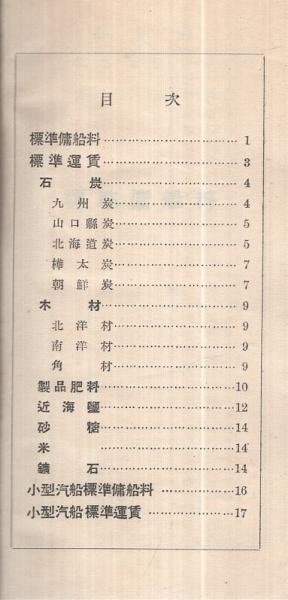 目次
標準傭船料……………………1
標準運賃……………………3
石炭……………………4
九州炭……………………4
山口縣炭……………………5
北海道炭……………………5
樺太炭……………………7
朝鮮炭……………………7
木材……………………9
北洋材……………………9
南洋材……………………9
角材……………………9
製品肥料……………………10
近海鹽……………………12
砂糖……………………14
米……………………14
鑛石……………………14
小型汽船標準傭船料……………16
小型汽船標準運賃……………17